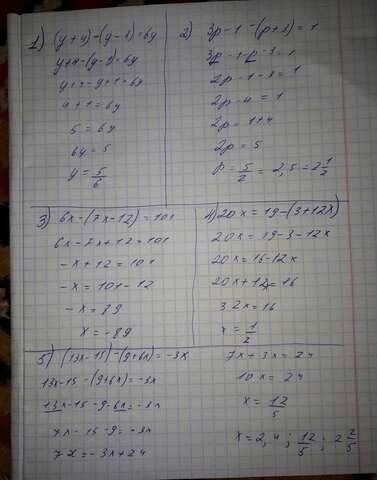 1) (y+4)-(y-1)=6y
y+4-(y-1)=6y
y+4-y+1=6y
4+1=6y
5=6y
6y=5
y=5/6
2) 3p-1-(p+3)=1
3p-1-p-3=1
2p-1-3=1
2p-4=1
2p=1+4
2p=5
p=5/2=2,5=2 1/2
3) 6x-(7x-12)=101
6x-7x+12=101
-x+12=101
-x=101-12
-x=89
x=-89
4) 20x=19-(3+12x)
20x=19-3-12x
20x=16-12x
20x+12x=16
32x=16
x=1/2
5) (13x-15)-(9+6x)=-3x
13x-15-(9+6x)=-3x
13x-15-9-6x=-3x
7x-15-9=-3x
7x=-3x+24
7x+3x=24
10x=24
x=12/5
x=2,4; 12/5; 2 2/5